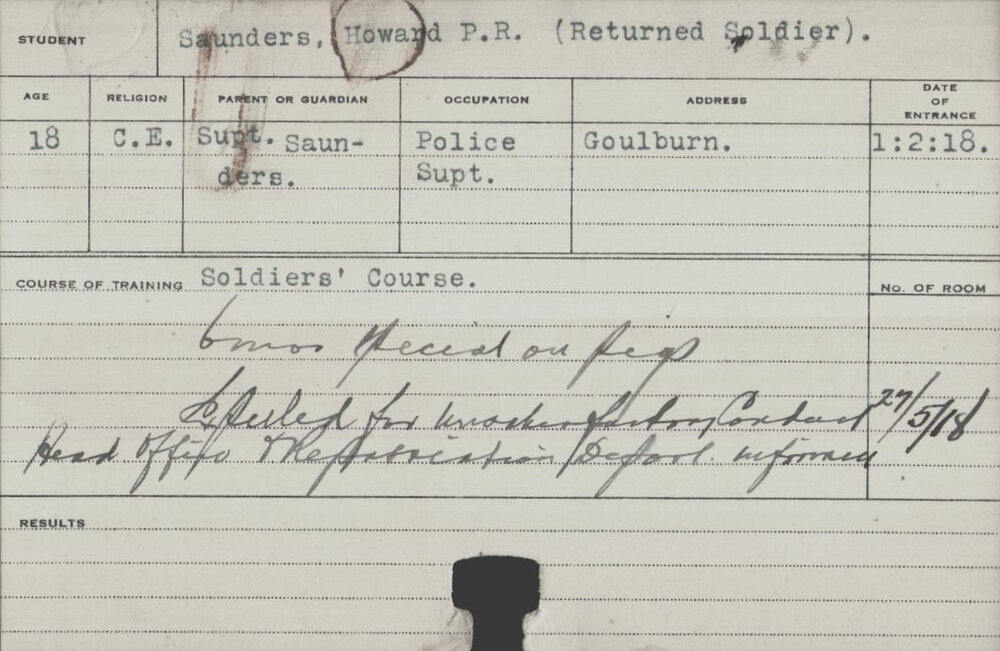 STUDENT Saunders, Howard P.R. (Returned Soldier).
AGE RELIGION PARENT OR GUARDIAN OCCUPATION ADDRESS DATE OF ENTRANCE
18 C.E. Supt. Saun- Police Goulburn. 1:2:18.
ders. Supt.
COURSE OF TRAINING Soldiers' Course. No. OF ROOM
6 mos special on pigs
Expelled for unsatisfactory Conduct 27/5/18
Head Office & Repatriation Depart. informed
RESULTS